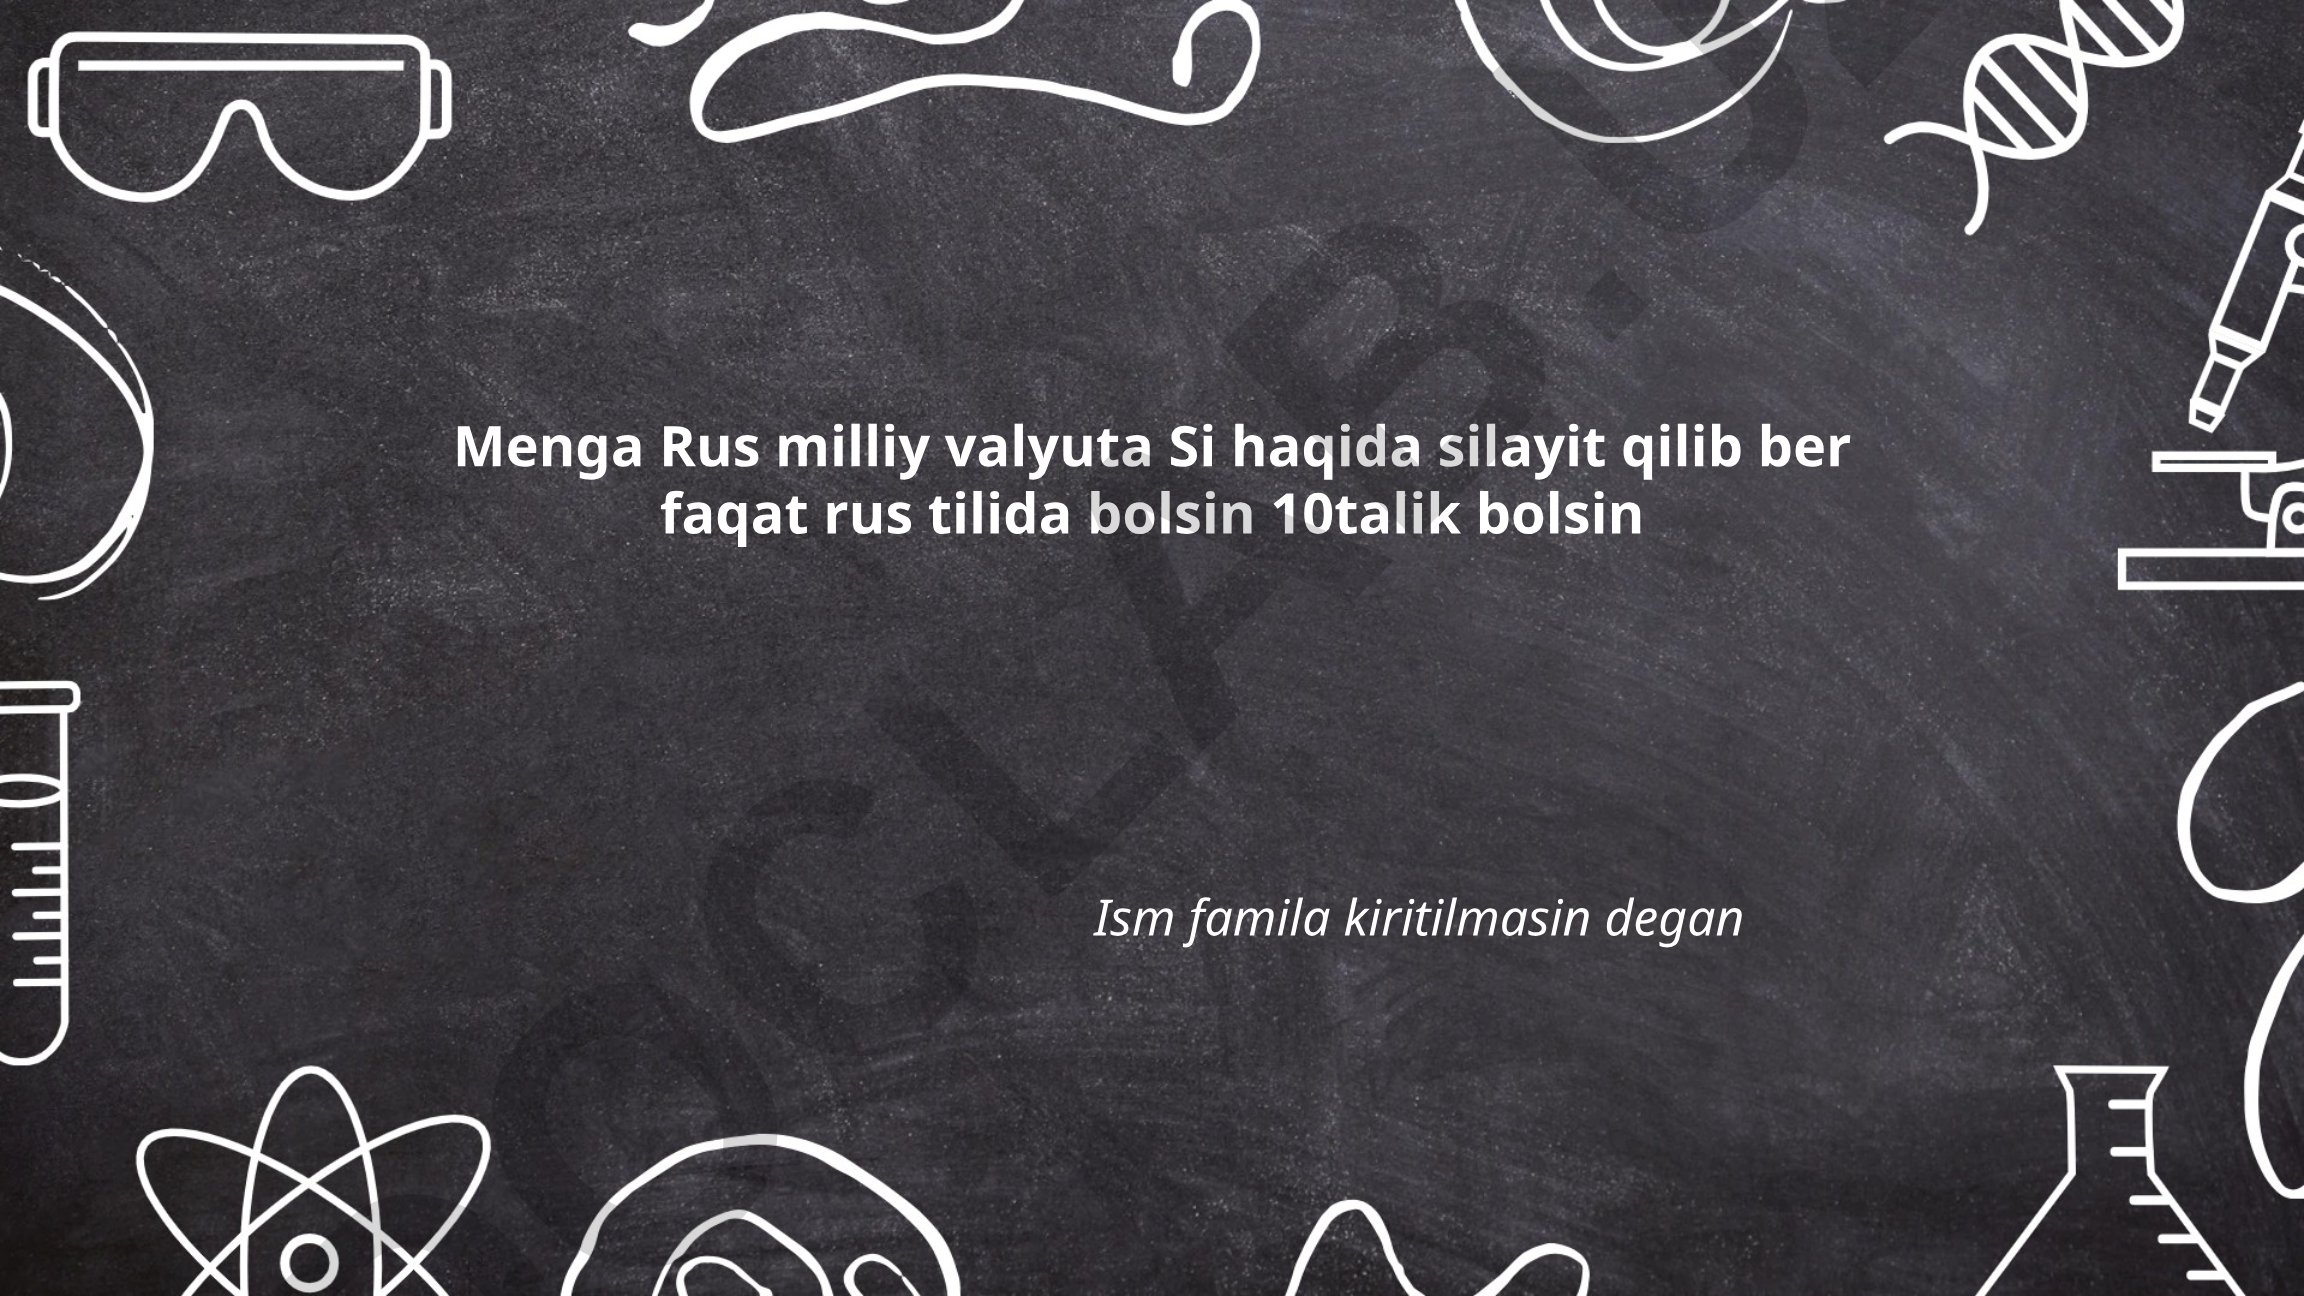 Menga Rus milliy valyuta Si haqida silayit qilib ber
faqat rus tilida bolsin 10talik bolsin
Ism famila kiritilmasin degan